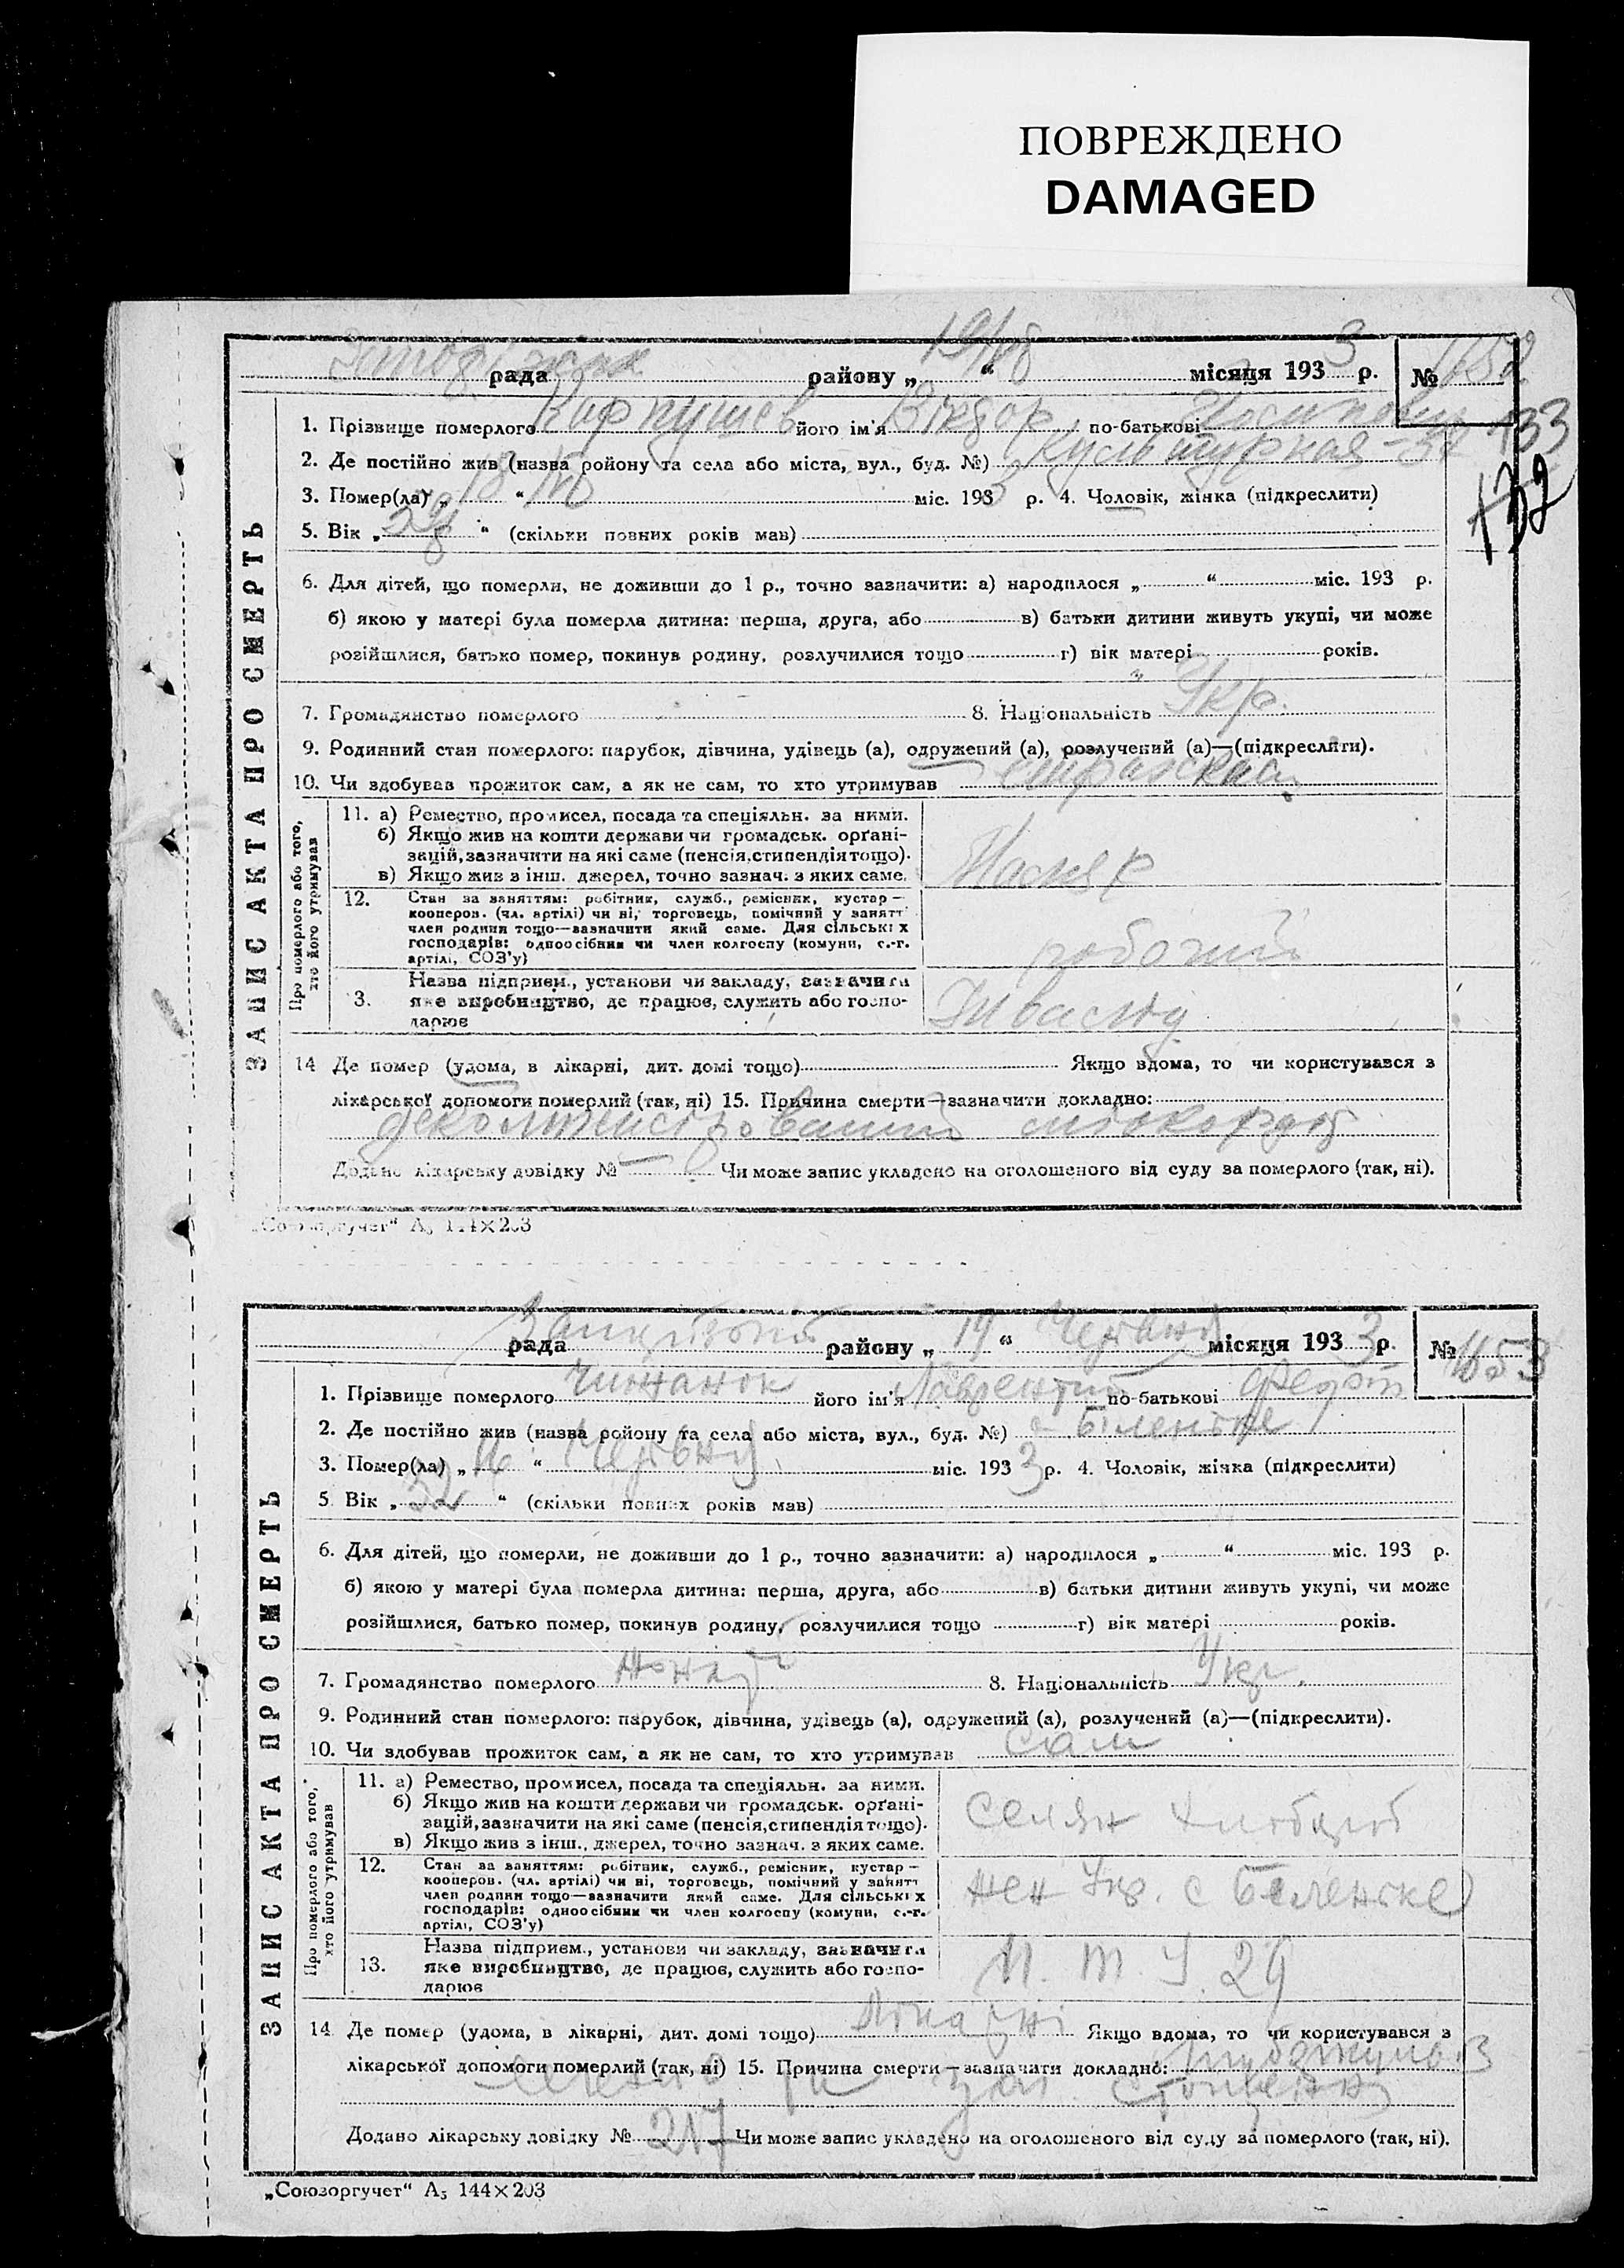 ПОВРЕЖДЕНО
DAMAGED
рада району „ 19/VI “ місяця 1933 р. № 1652
1. Прізвище померлого його ім'я Віктор по-батькові Йосипович
133
2. Де постійно жив (назва ройону та села або міста, вул., буд. №) Культурная-
132
3. Помер(ла) „ 18 “ VI міс. 1933 р. 4. Чоловік, жінка (підкреслити)
5. Вік „ “ (скільки повних років мав)
6. Для дітей, що померли, не доживши до 1 р., точно зазначити: а) народилося „ “ міс. 193 р.
б) якою у матері була померла дитина: перша, друга, або в) батьки дитини живуть укупі, чи може
розійшлися, батько помер, покинув родину, розлучилися тощо г) вік матері років.
7. Громадянство померлого 8. Національність Укр.
9. Родинний стан померлого: парубок, дівчина, удівець (а), одружений (а), розлучений (а)—(підкреслити).
10. Чи здобував прожиток сам, а як не сам, то хто утримував
ЗАПИС АКТА ПРО СМЕРТЬ
Про померлого або того, хто його утримував
11. а) Ремество, промисел, посада та спеціяльн. за ними.
б) Якщо жив на кошти держави чи громадськ. орґані-
зацій, зазначити на які саме (пенсія, стипендія тощо).
в) Якщо жив з інш. джерел, точно зазнач. з яких саме.
12. Стан за заняттям: робітник, служб., ремісник, кустар —
кооперов. (чл. артілі) чи ні, торговець, помічний у занятт
член родини тощо—зазначити який саме. Для сільськіх
господарів: одноосібник чи член колгоспу (комуни, с.-г.
артілі, СОЗ'у)
робочий
13. Назва підприєм., установи чи закладу, зазначити
яке виробництво, де працює, служить або госпо-
дарює
14 Де помер (удома, в лікарні, дит. домі тощо) Якщо вдома, то чи користувався з
лікарської допомоги померлий (так, ні) 15. Причина смерти—зазначити докладно:
міокардіт
Додано лікарську довідку № — Чи може запис укладено на оголошеного від суду за померлого (так, ні).
„Союзоргучет“ А5 144×203
рада району „ 17 “ Червня місяця 1933 р. № 1653
1. Прізвище померлого Чижанок його ім'я Лаврентий по-батькові Федот
2. Де постійно жив (назва ройону та села або міста, вул., буд. №) с Біленьке
3. Помер(ла) „ 16 “ Червня міс. 1933 р. 4. Чоловік, жінка (підкреслити)
5 Вік „ 32 “ (скільки повних років мав)
6. Для дітей, що померли, не доживши до 1 р., точно зазначити: а) народилося „ “ міс. 193 р.
б) якою у матері була померла дитина: перша, друга, або в) батьки дитини живуть укупі, чи може
розійшлися, батько помер, покинув родину, розлучилися тощо г) вік матері років.
7. Громадянство померлого 8. Національність Укр.
9. Родинний стан померлого: парубок, дівчина, удівець (а), одружений (а), розлучений (а)—(підкреслити).
10. Чи здобував прожиток сам, а як не сам, то хто утримував сам
ЗАПИС АКТА ПРО СМЕРТЬ
Про померлого або того, хто його утримував
11. а) Ремество, промисел, посада та спеціяльн. за ними.
б) Якщо жив на кошти держави чи громадськ. орґані-
зацій, зазначити на які саме (пенсія, стипендія тощо).
в) Якщо жив з інш. джерел, точно зазнач. з яких саме.
селян хлібороб
12. Стан за заняттям: робітник, служб., ремісник, кустар —
кооперов. (чл. артілі) чи ні, торговець, помічний у занятт
член родини тощо—зазначити який саме. Для сільськіх
господарів: одноосібник чи член колгоспу (комуни, с.-г.
артілі, СОЗ'у)
с Беленьке
13. Назва підприєм., установи чи закладу, зазначити
яке виробництво, де працює, служить або госпо-
дарює
14 Де помер (удома, в лікарні, дит. домі тощо) Лікарні Якщо вдома, то чи користувався з
лікарської допомоги померлий (так, ні) 15. Причина смерти—зазначити докладно: туберкульоз
Додано лікарську довідку № 217 Чи може запис укладено на оголошеного від суду за померлого (так, ні).
„Союзоргучет“ А5 144×203